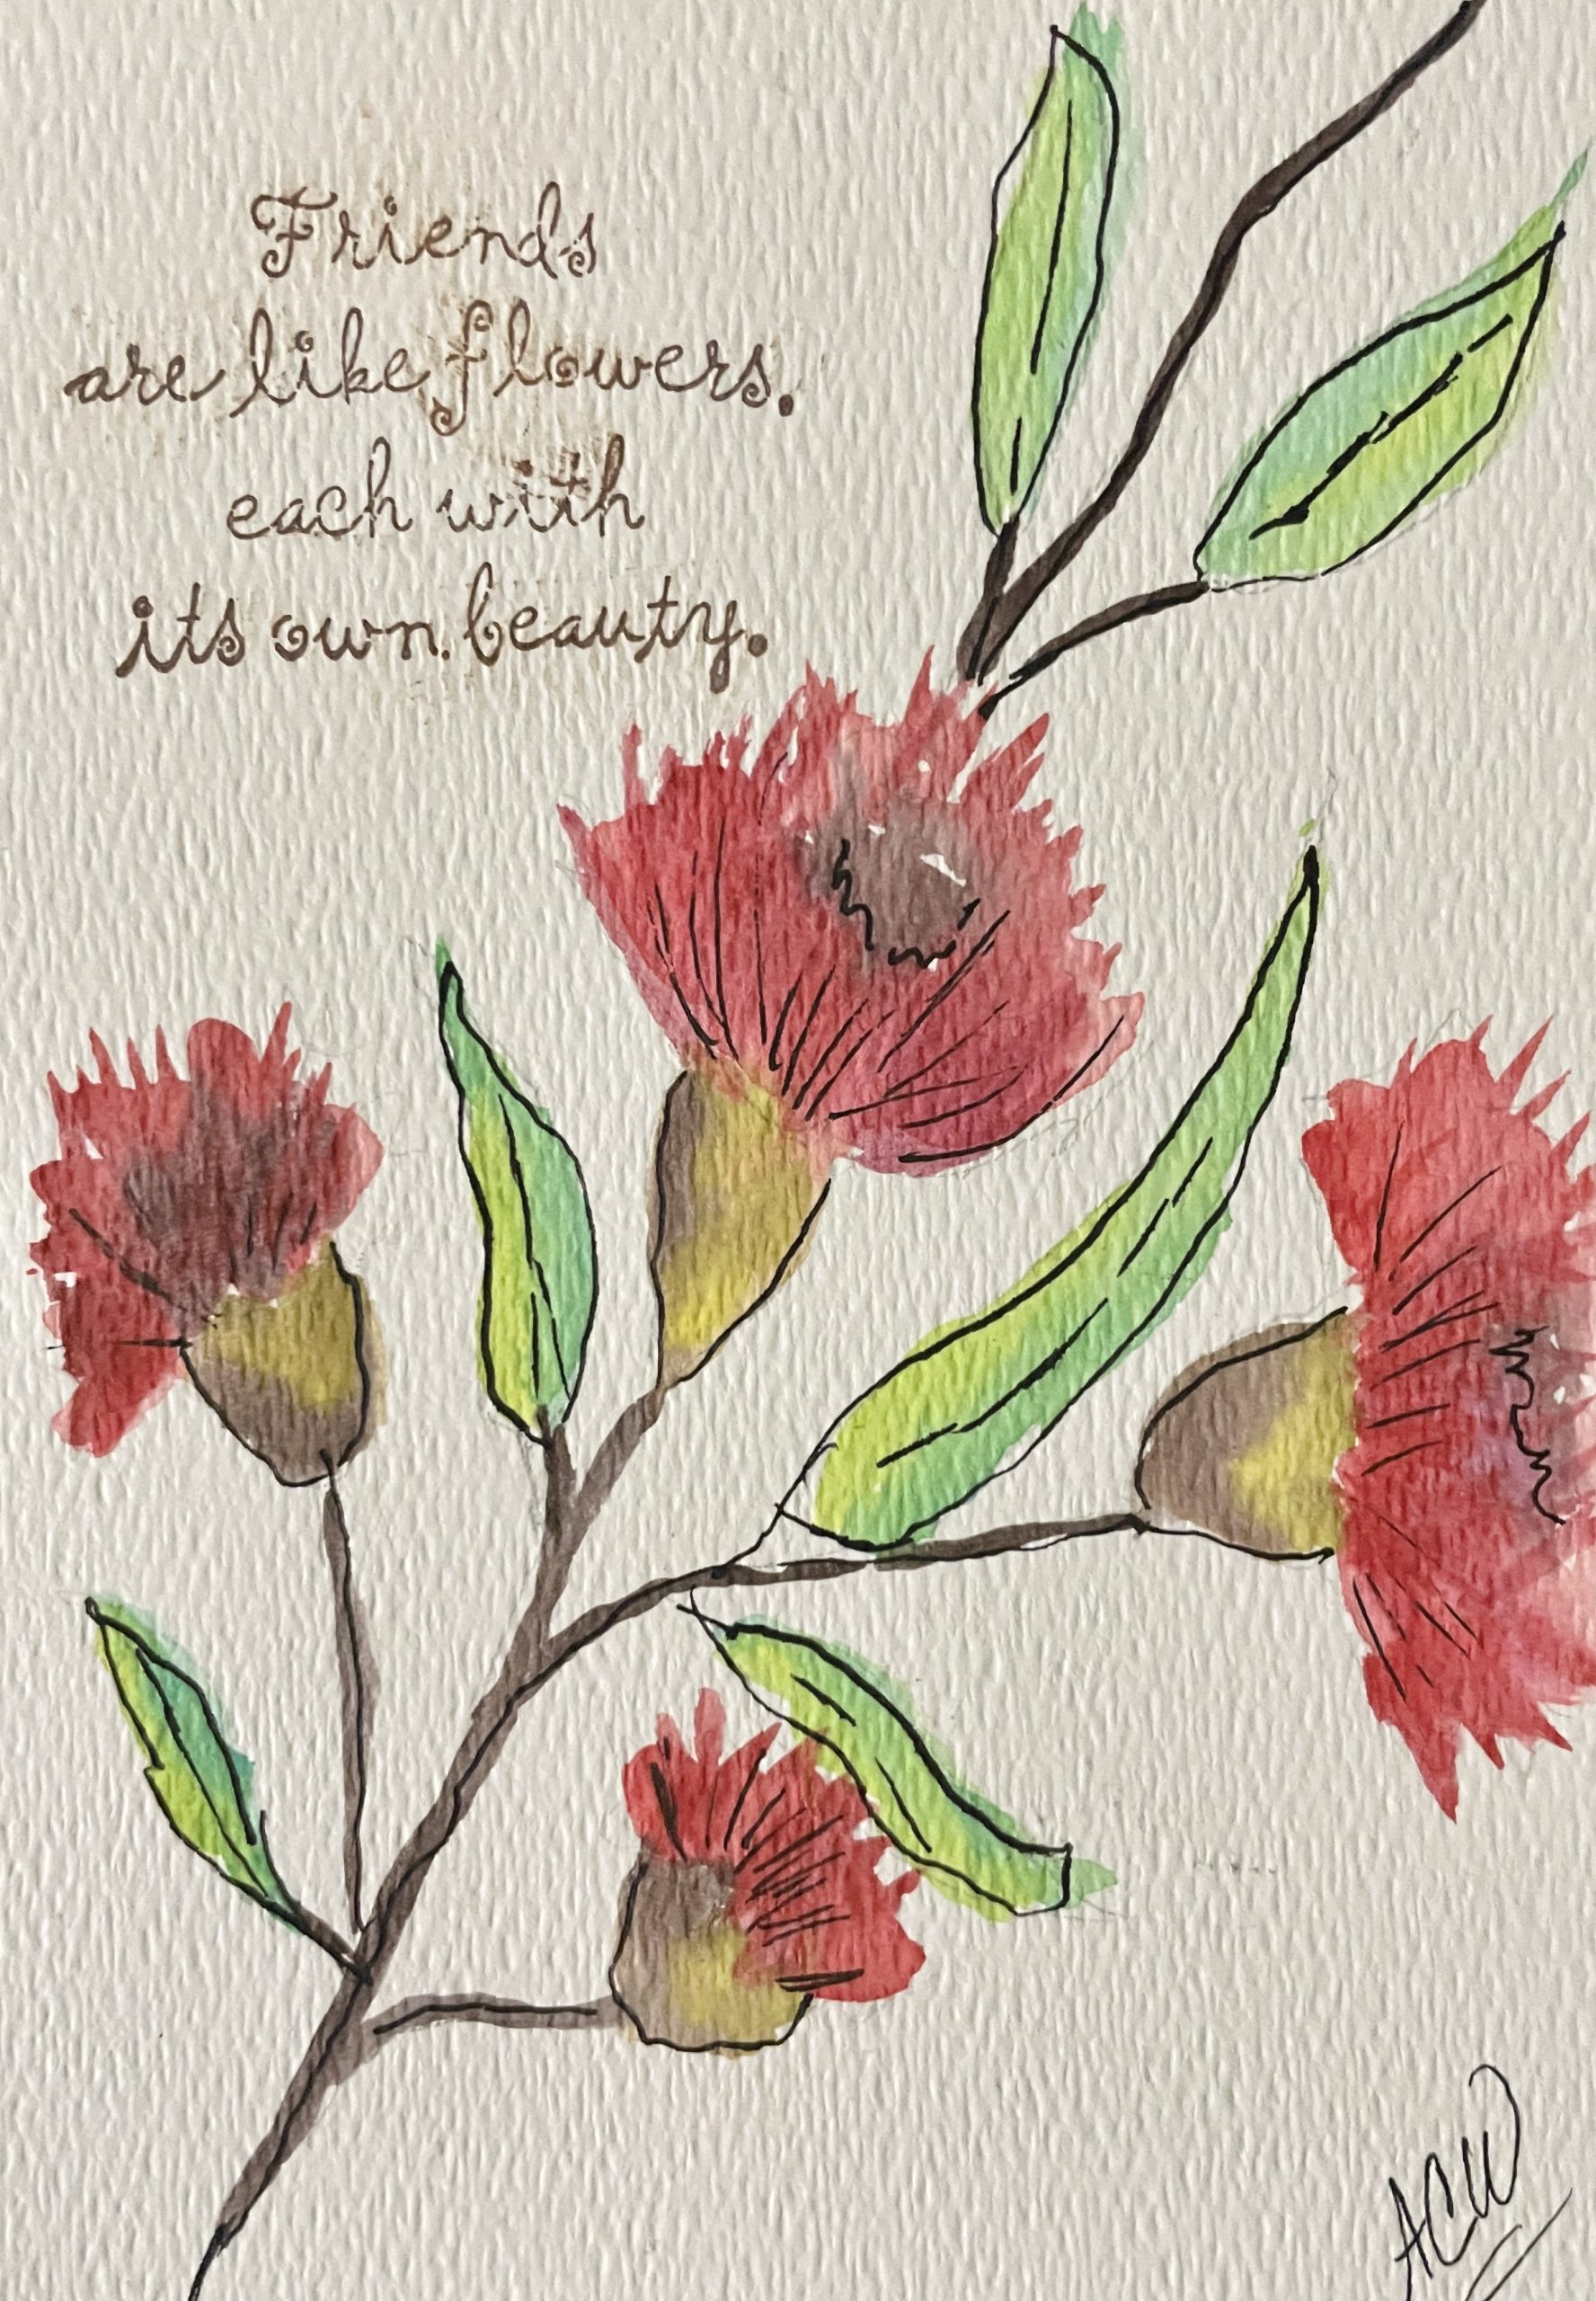 Friends
are like flowers.
each with
its own. beauty.
ACW